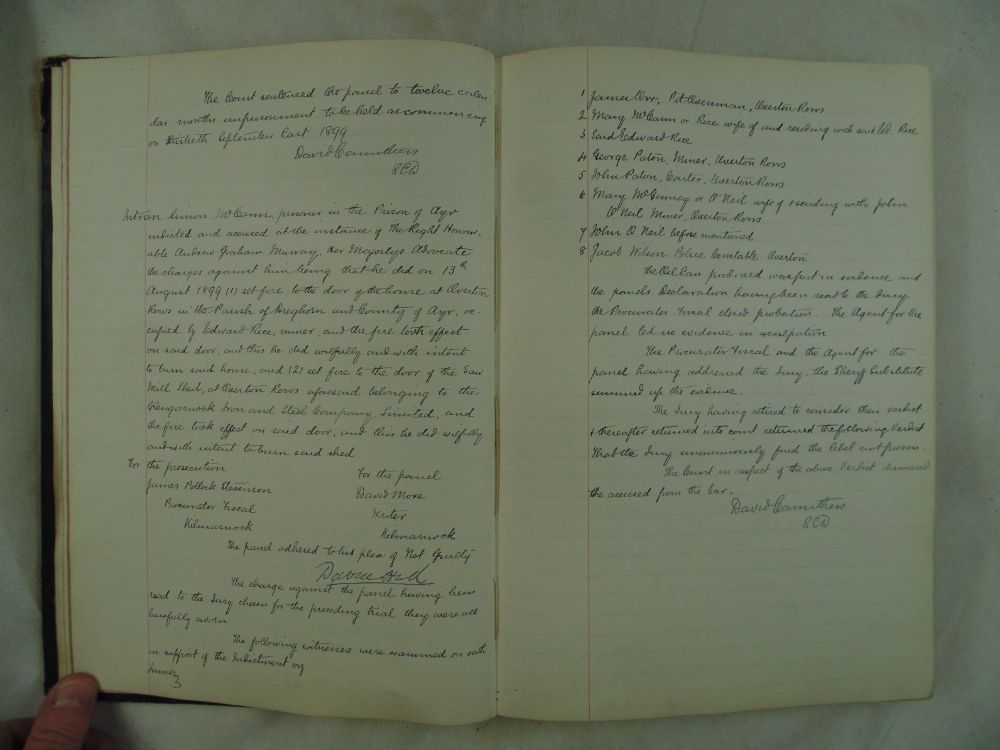 The Court sentenced the panel to twelve calen
dar months imprisonment to be held as commencing
on thirtieth September last 1899
David Carruthers
S C D
Intran Simon McCann, prisoner in the Prison of Ayr
indicted and accused at the instance of The Right Honour-
able Andrew Graham Murray, Her Majestys Advocate
the charges against him being that he did on 13th
August 1899 (1) set fire to the door of the house at Overton
Rows in the Parish of Dreghorn and County of Ayr, oc-
cupied by Edward Rice, miner, and the fire took effect
on said door, and this he did wilfully and with intent
to burn said house, and (2) set fire to the door of the Saw
Mill Shed, at Overton Rows aforesaid belonging to the
Glengarnock Iron and Steel Company, Limited, and
the fire took effect on said door, and this he did wilfully
and with intent to burn said shed
For the prosecution
James Pollock Stevenson
Procurator Fiscal
Kilmarnock
For the panel
David More
Writer
Kilmarnock
The panel adhered to his plea of Not Guilty
The charge against the panel having been
read to the Jury chosen for the preceding trial they were all
lawfully sworn
The following witnesses were examined on oath
in support of the Indictment viz
James
1 James Orr, Pit Ovenman, Overton Rows
2 Mary McCann or Rice wife of and residing with said Ed. Rice
3 Said Edward Rice
4 George Paton, Miner, Overton Rows
5 John Paton, Carter, Overton Rows
6 Mary McGinney or O'Neil wife of & residing with John
O'Neil Miner, Overton Rows
7 John O'Neil before mentioned
8 Jacob Wilson Police Constable Overton
The Oil Can produced was put in evidence and
the panels Declaration having been read to the Jury
the Procurator Fiscal closed probation. The Agent for the
panel led no evidence in exculpation
The Procurator Fiscal and the Agent for the
panel having addressed the Jury, the Sheriff Substitute
summed up the evidence.
The Jury having retired to consider their verdict
& thereafter returned into court returned the following Verdict
That the Jury unanimously find the libel not proven.
The Court in respect of the above Verdict dismissed
the accused from the bar.
David Carruthers
S C D